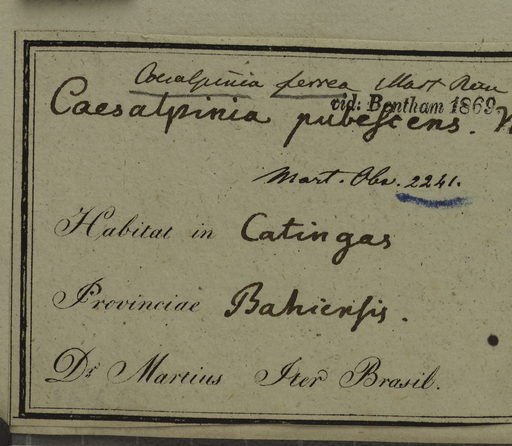 Caesalpinia ferrea Mart
vid: Bentham 1869.
Caesalpinia pubescens.
Mart. Obs. 2241.
Habitat in Catingas
Provinciae Bahiensis.
Dr Martius Iter Brasil.